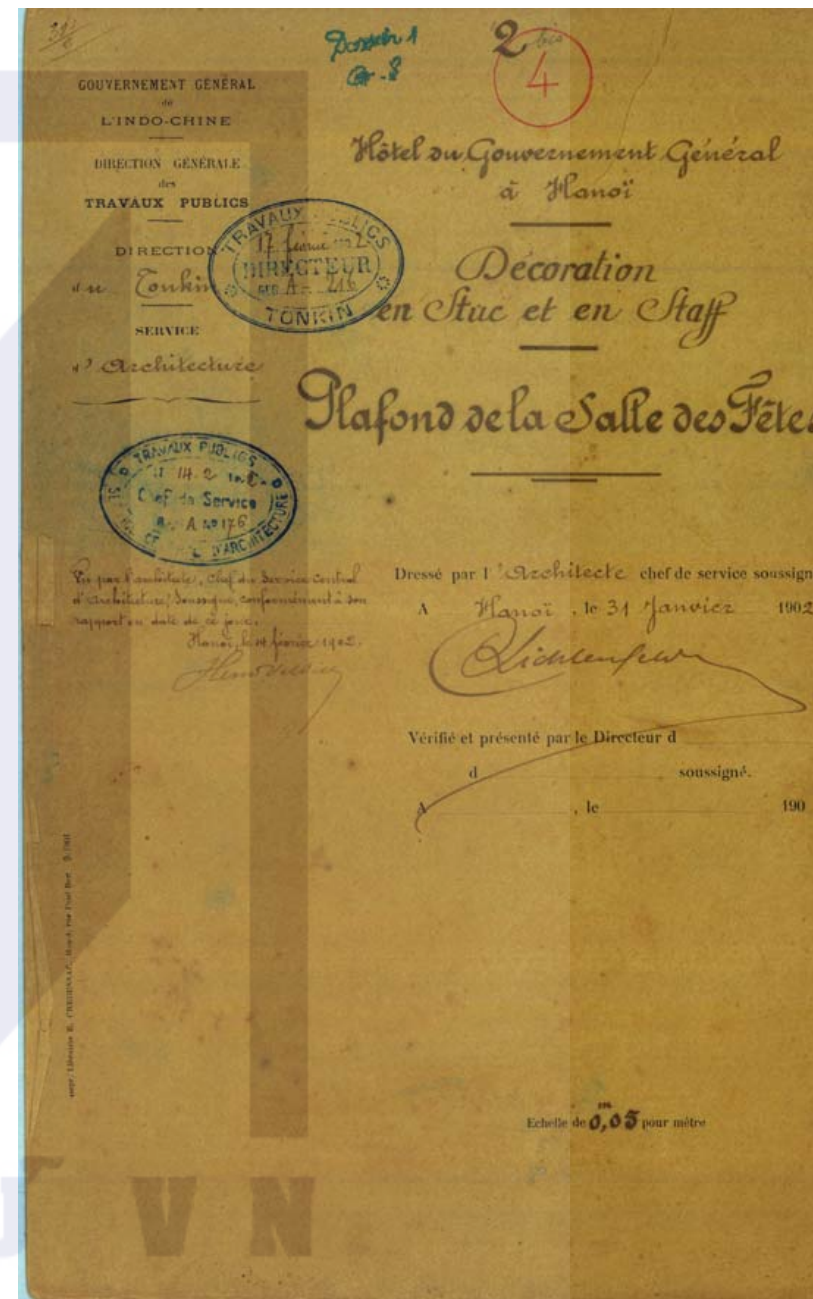 Dossier 1
2 bis
4
GOUVERNEMENT GÉNÉRAL
de
L'INDO-CHINE
DIRECTION GÉNÉRALE
des
TRAVAUX PUBLICS
DIRECTION
du Tonkin
SERVICE
d'Architecture
TRAVAUX PUBLICS
17 février 1902
DIRECTEUR
A - 216
TONKIN
TRAVAUX PUBLICS
14.2
Chef de Service
A No 176
D'ARCHITECTURE
Vu par l'architecte, Chef du Service central
d'Architecture, Soussigné, conformément à son
rapport en date de ce jour.
Hanoi, le 14 février 1902.
Hôtel du Gouvernement Général
à Hanoï
Décoration
en Stuc et en Staff
Plafond de la Salle des Fêtes
Dressé par l'Architecte chef de service soussign
A Hanoï, le 31 Janvier 1902
Lichtenfelder
Vérifié et présenté par le Directeur d
d soussigné.
A , le 190
Echelle de 0,05 m pour mètre
VN